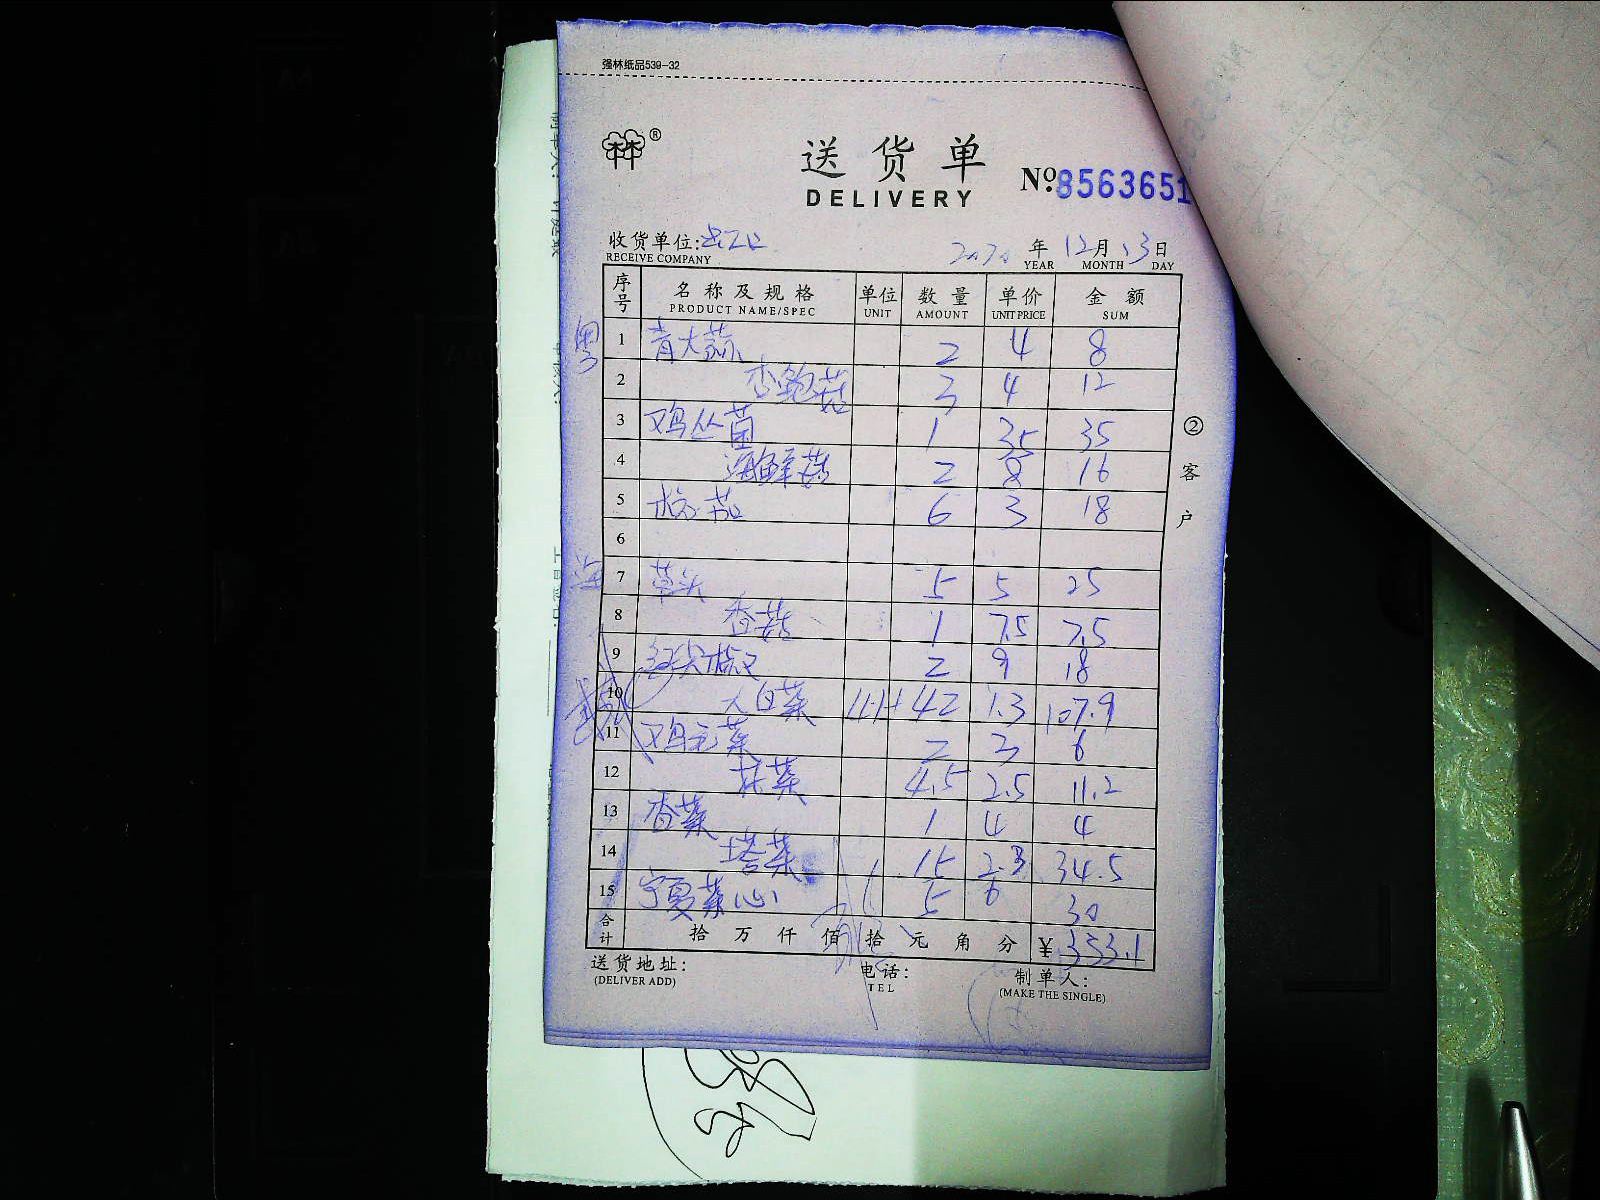 强林纸品539-32
®
送货单
DELIVERY
Nº:8563651
收货单位: 2020年12月13日
RECEIVE COMPANY YEAR MONTH DAY
序号 名称及规格 单位 数量 单价 金额
PRODUCT NAME/SPEC UNIT AMOUNT UNIT PRICE SUM
粤 1 青大蒜 2 4 8
2 杏鲍菇 3 4 12
3 鸡丛菌 1 35 35
4 海鲜菇 2 8 16
5 茄 6 3 18
6
海 7 草头 5 5 25
8 香菇 1 7.5 7.5
9 红尖椒 2 9 18
10 大白菜 42 1.3 107.9
11 鸡毛菜 2 3 6
12 菜 4.5 2.5 11.2
13 香菜 1 4 4
14 塔菜 15 2.3 34.5
15 宁夏菜心 5 6 30
合计 拾万仟佰拾元角分 ¥333.1
送货地址: 电话: 制单人:
(DELIVER ADD) TEL (MAKE THE SINGLE)
②客户